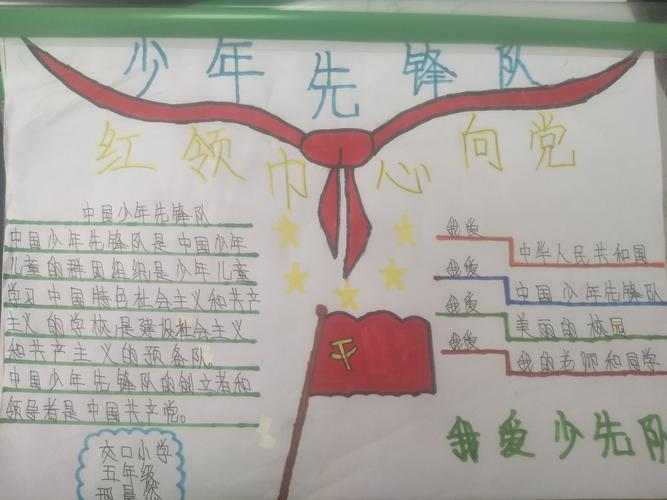 少年先锋队
红领巾心向党
中国少年先锋队
中国少年先锋队是中国少年
儿童的群团组织是少年儿童
学习中国特色社会主义和共产
主义的学林,是建设社会主义
和共产主义的预备队。
中国少年先锋队的创立者和
领导者是中国共产党。
我爱
中华人民共和国
我爱
中国少年先锋队
我爱
美丽的校园
我爱
我的老师和同学
我爱少先队
交口小学
五年级